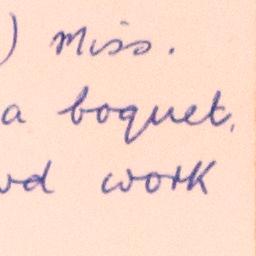 ) Miss.
a boquet,
work